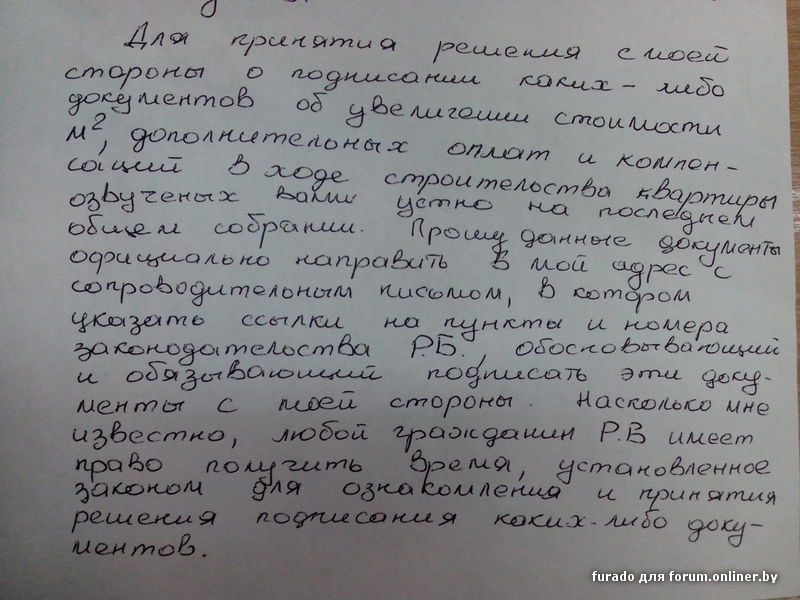 Для принятия решения с моей
стороны о подписании каких-либо
документов об увеличении стоимости
м², дополнительных оплат и компен-
саций в ходе строительства квартиры
озвученых вами устно на последнем
общем собрании. Прошу данные документы
официально направить в мой адрес с
сопроводительным письмом, в котором
указать ссылки на пункты и номера
законодательства Р.Б., обосновывающий
и обязывающий подписать эти доку-
менты с моей стороны. Насколько мне
известно, любой гражданин Р.В имеет
право получить время, установленное
законом для ознакомления и принятия
решения подписания каких-либо доку-
ментов.
furado для forum.onliner.by